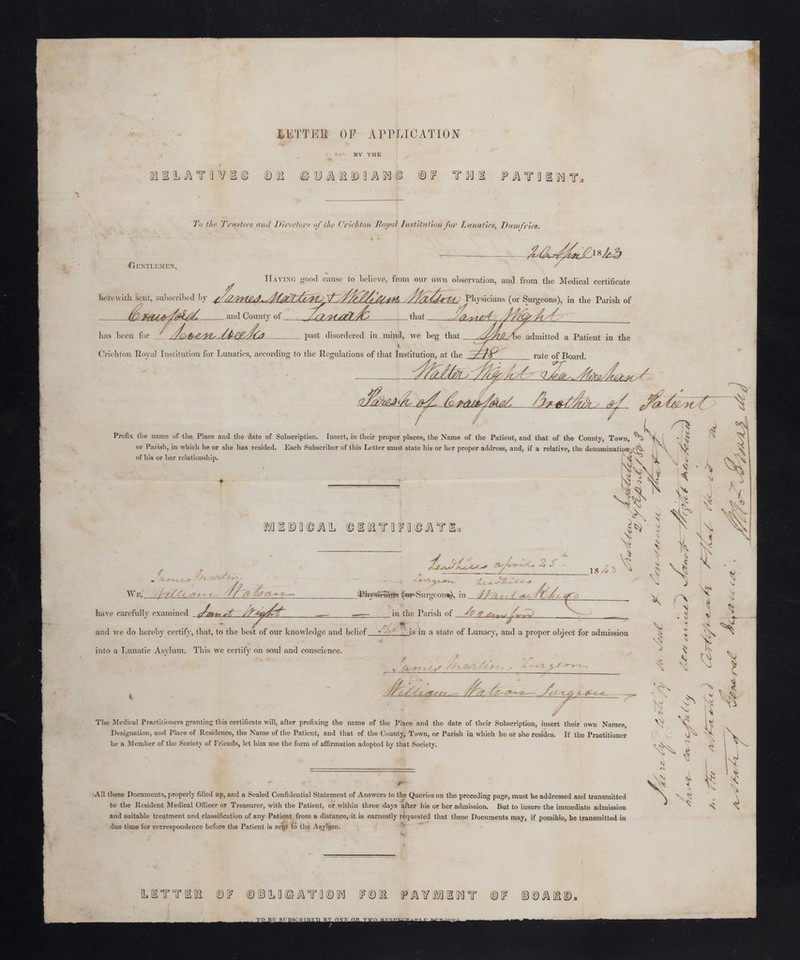 LETTER OF APPLICATION
BY THE
RELATIVES OR GUARDIANS OF THE PATIENT.
To the Trustees and Directors of the Crichton Royal Institution for Lunatics, Dumfries.
26 April 1843
GENTLEMEN,
HAVING good cause to believe, from our own observation, and from the Medical certificate
herewith sent, subscribed by James Martin & William Watson Physicians (or Surgeons), in the Parish of
Crawford and County of Lanark that Janet Wight
has been for Seven Weeks past disordered in mind, we beg that She be admitted a Patient in the
Crichton Royal Institution for Lunatics, according to the Regulations of that Institution, at the £18 rate of Board.
Walter Wight Tea Merchant
Parish of Crawford Brother of Patient
Prefix the name of the Place and the date of Subscription. Insert, in their proper places, the Name of the Patient, and that of the County, Town,
or Parish, in which he or she has resided. Each Subscriber of this Letter must state his or her proper address, and, if a relative, the denomination
of his or her relationship.
MEDICAL CERTIFICATE.
Leadhills april 25th 1843
James Martin Surgeon Leadhills
WE, William Watson Physicians (or Surgeons), in Wanlockhead
have carefully examined Janet Wight in the Parish of Crawford
and we do hereby certify, that, to the best of our knowledge and belief She is in a state of Lunacy, and a proper object for admission
into a Lunatic Asylum. This we certify on soul and conscience.
James Martin, Surgeon
William Watson Surgeon
The Medical Practitioners granting this certificate will, after prefixing the name of the Place and the date of their Subscription, insert their own Names,
Designation, and Place of Residence, the Name of the Patient, and that of the County, Town, or Parish in which he or she resides. If the Practitioner
be a Member of the Society of Friends, let him use the form of affirmation adopted by that Society.
All these Documents, properly filled up, and a Sealed Confidential Statement of Answers to the Queries on the preceding page, must be addressed and transmitted
to the Resident Medical Officer or Treasurer, with the Patient, or within three days after his or her admission. But to insure the immediate admission
and suitable treatment and classification of any Patient from a distance, it is earnestly requested that these Documents may, if possible, be transmitted in
due time for correspondence before the Patient is sent to the Asylum.
LETTER OF OBLIGATION FOR PAYMENT OF BOARD.
TO BE SUBSCRIBED BY ONE OR TWO
Crichton Institution
I hereby certify on Soul & Conscience that I
have carefully examined Janet Wight mentioned
in the attached Certificate & that she is in
a State of General Mania.